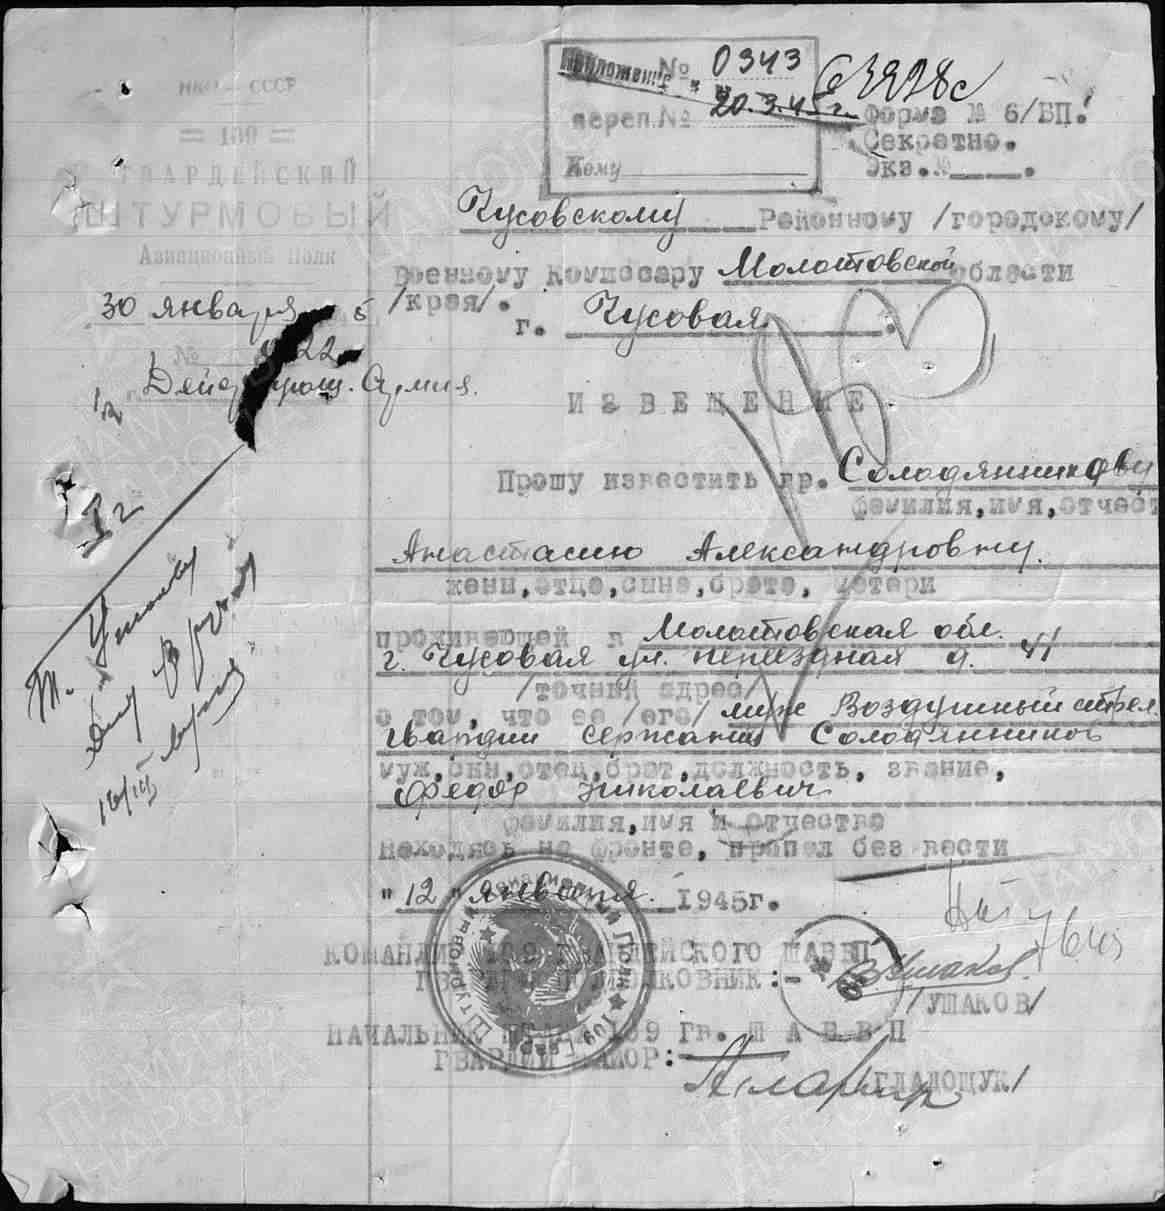 НКО — СССР
= 109 =
ГВАРДЕЙСКИЙ
ШТУРМОВЫЙ
Авиационный Полк
30 января 5
№ 22
Действующ. Армия.
Приложение № 0343
к переп.№ 20.3.45 г.
Кому
63928с
Форма № 6/БП.
Секретно.
Экз.№ .
Чусовскому Районному /городскому/
Военному Комиссару Молотовской области
/края/.
г. Чусовая.
ИЗВЕЩЕНИЕ
Прошу известить гр. Солодянникову
фамилия,имя,отчест
Анастасию Александровну.
жены,отца,сына,брата, матери
проживающей в Молотовская обл.
г. Чусовая ул. переездная д. 41
/точный адрес/
о том, что ее /его/ муж Воздушный стрел.
Гвардии Сержант Солодянников
муж,сын,отец,брат,должность, звание,
Федор Николаевич
фамилия,имя и отчество
находясь на фронте, пропал без вести
"12" января. 1945г.
КОМАНДИР 109 ГВАРДЕЙСКОГО ШАВЕП
ГВАРДИИ ПОДПОЛКОВНИК:-
/УШАКОВ/
НАЧАЛЬНИК ШТАБА 109 Гв. Ш А Е В П
ГВАРДИИ МАЙОР:
/ГЛАДОЩУК/